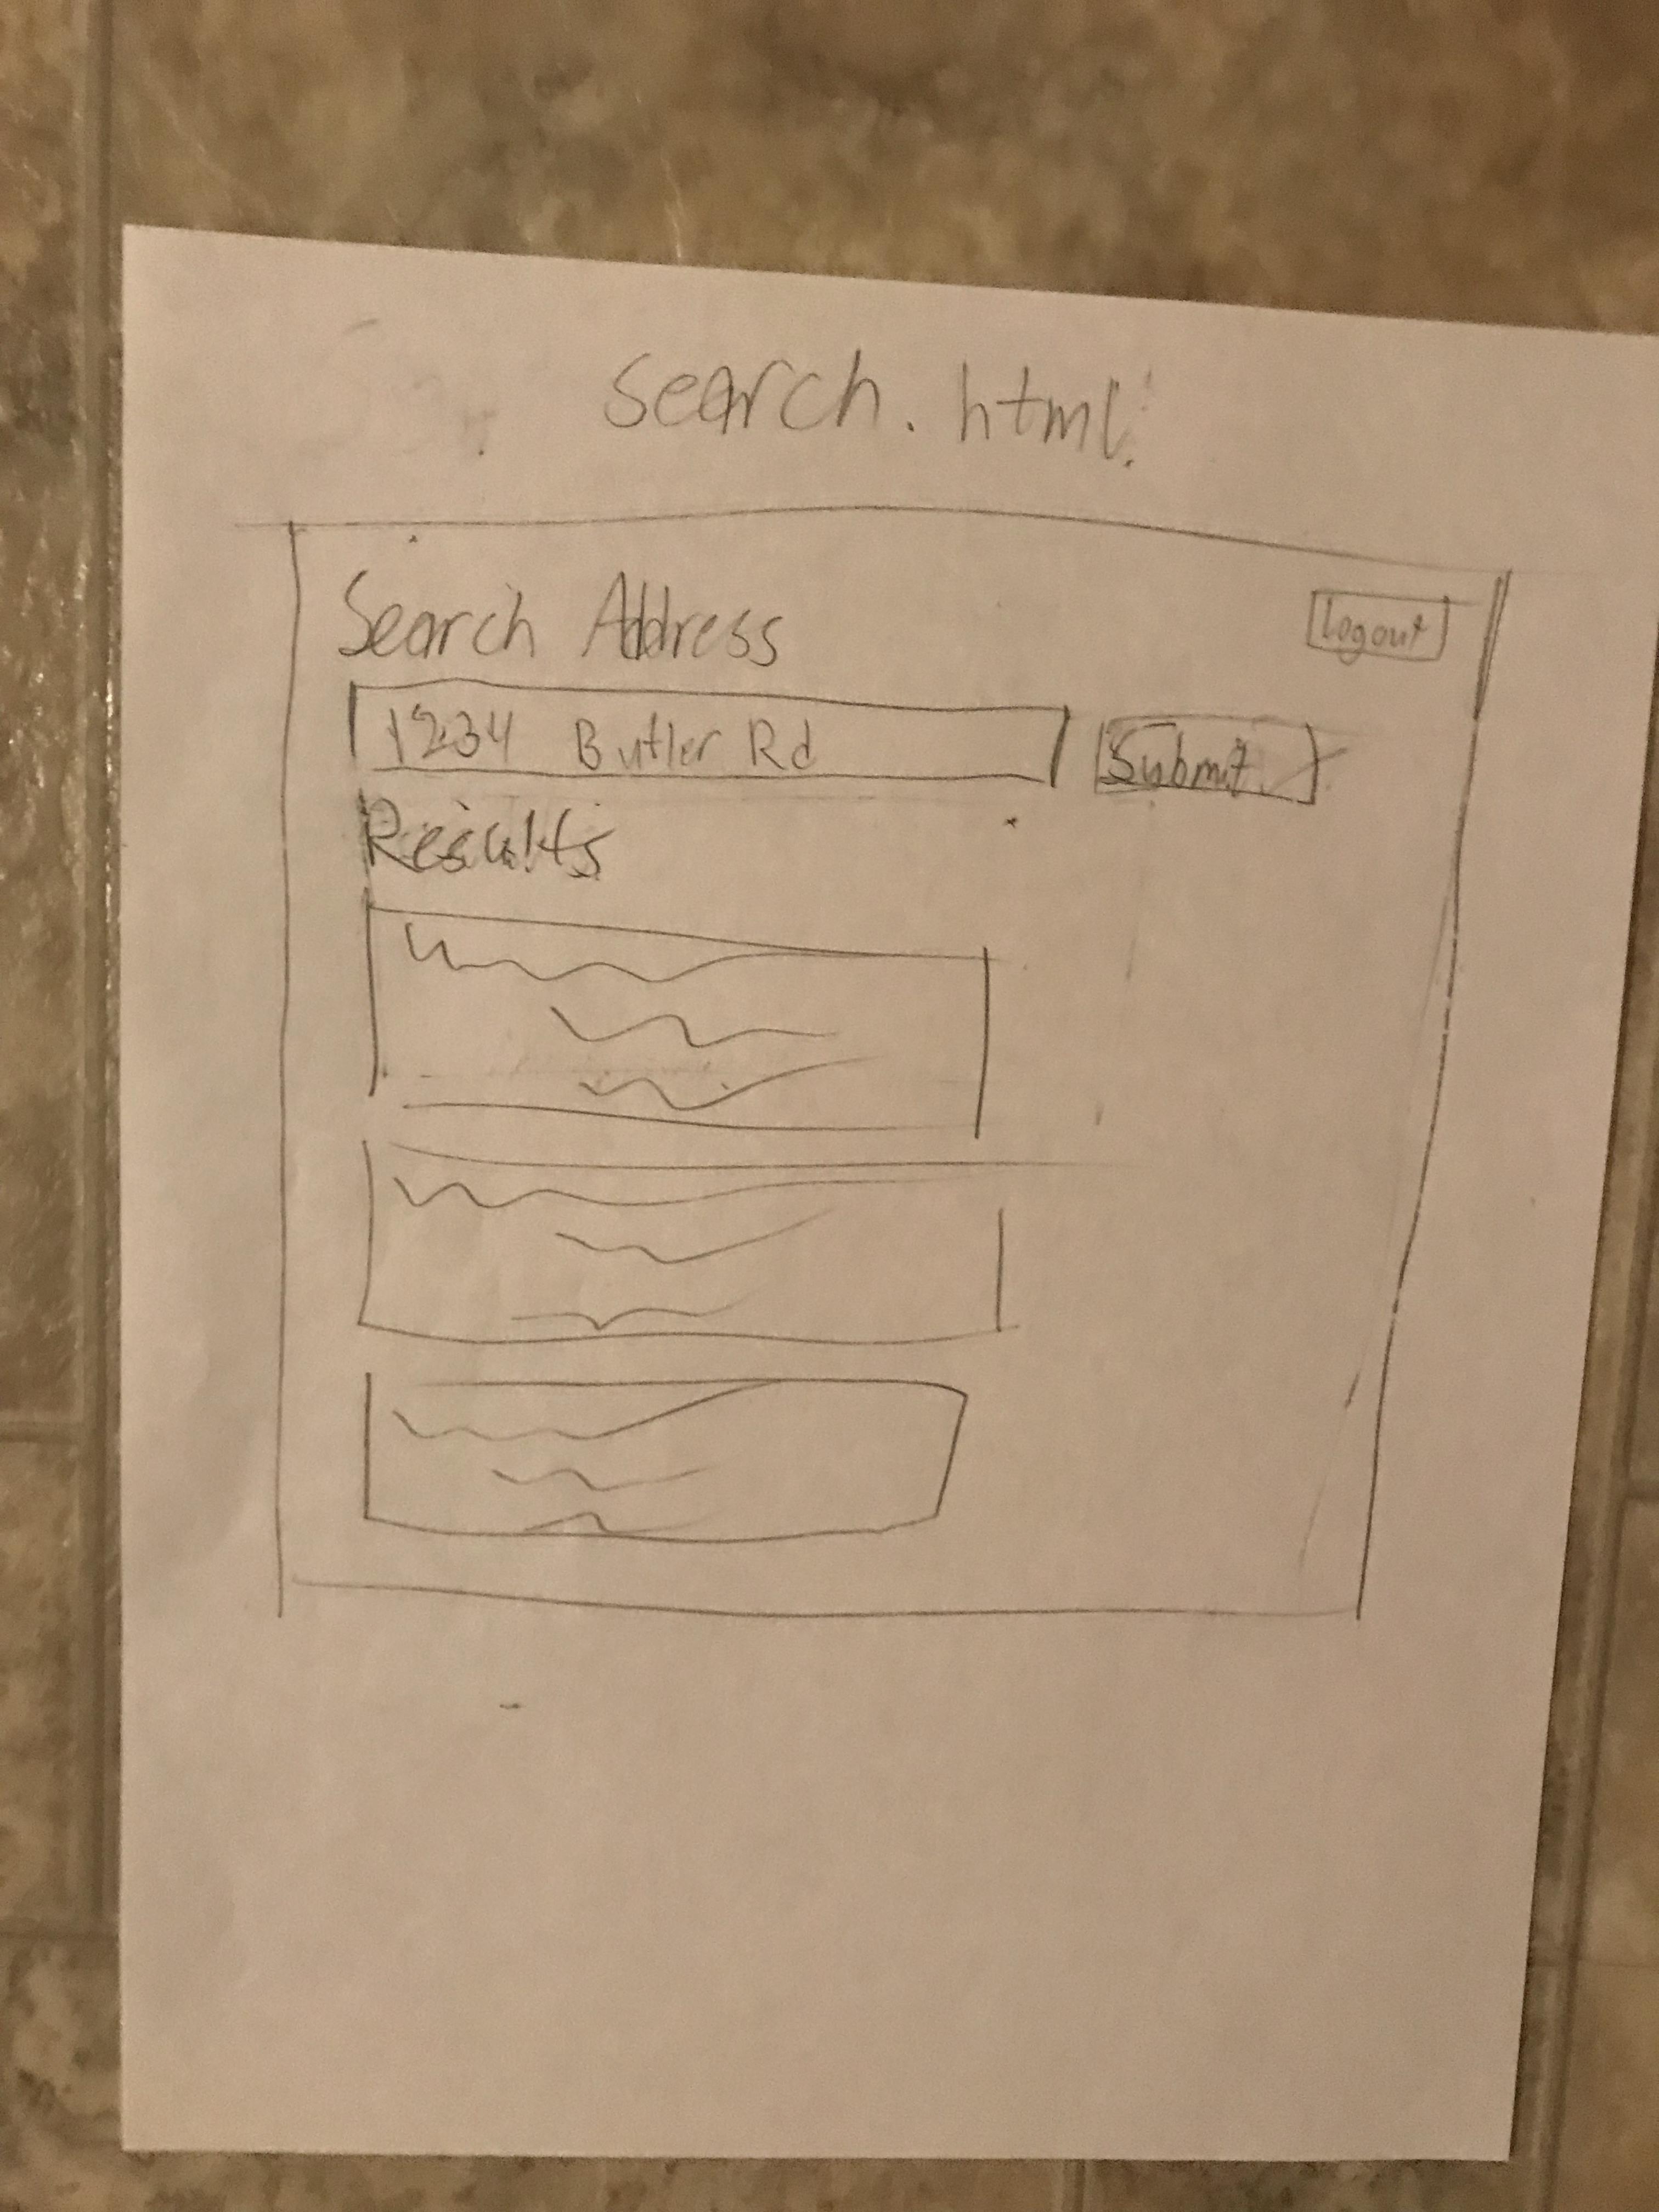 search.html
Search Address
Logout
1234 Butler Rd
Submit
Results